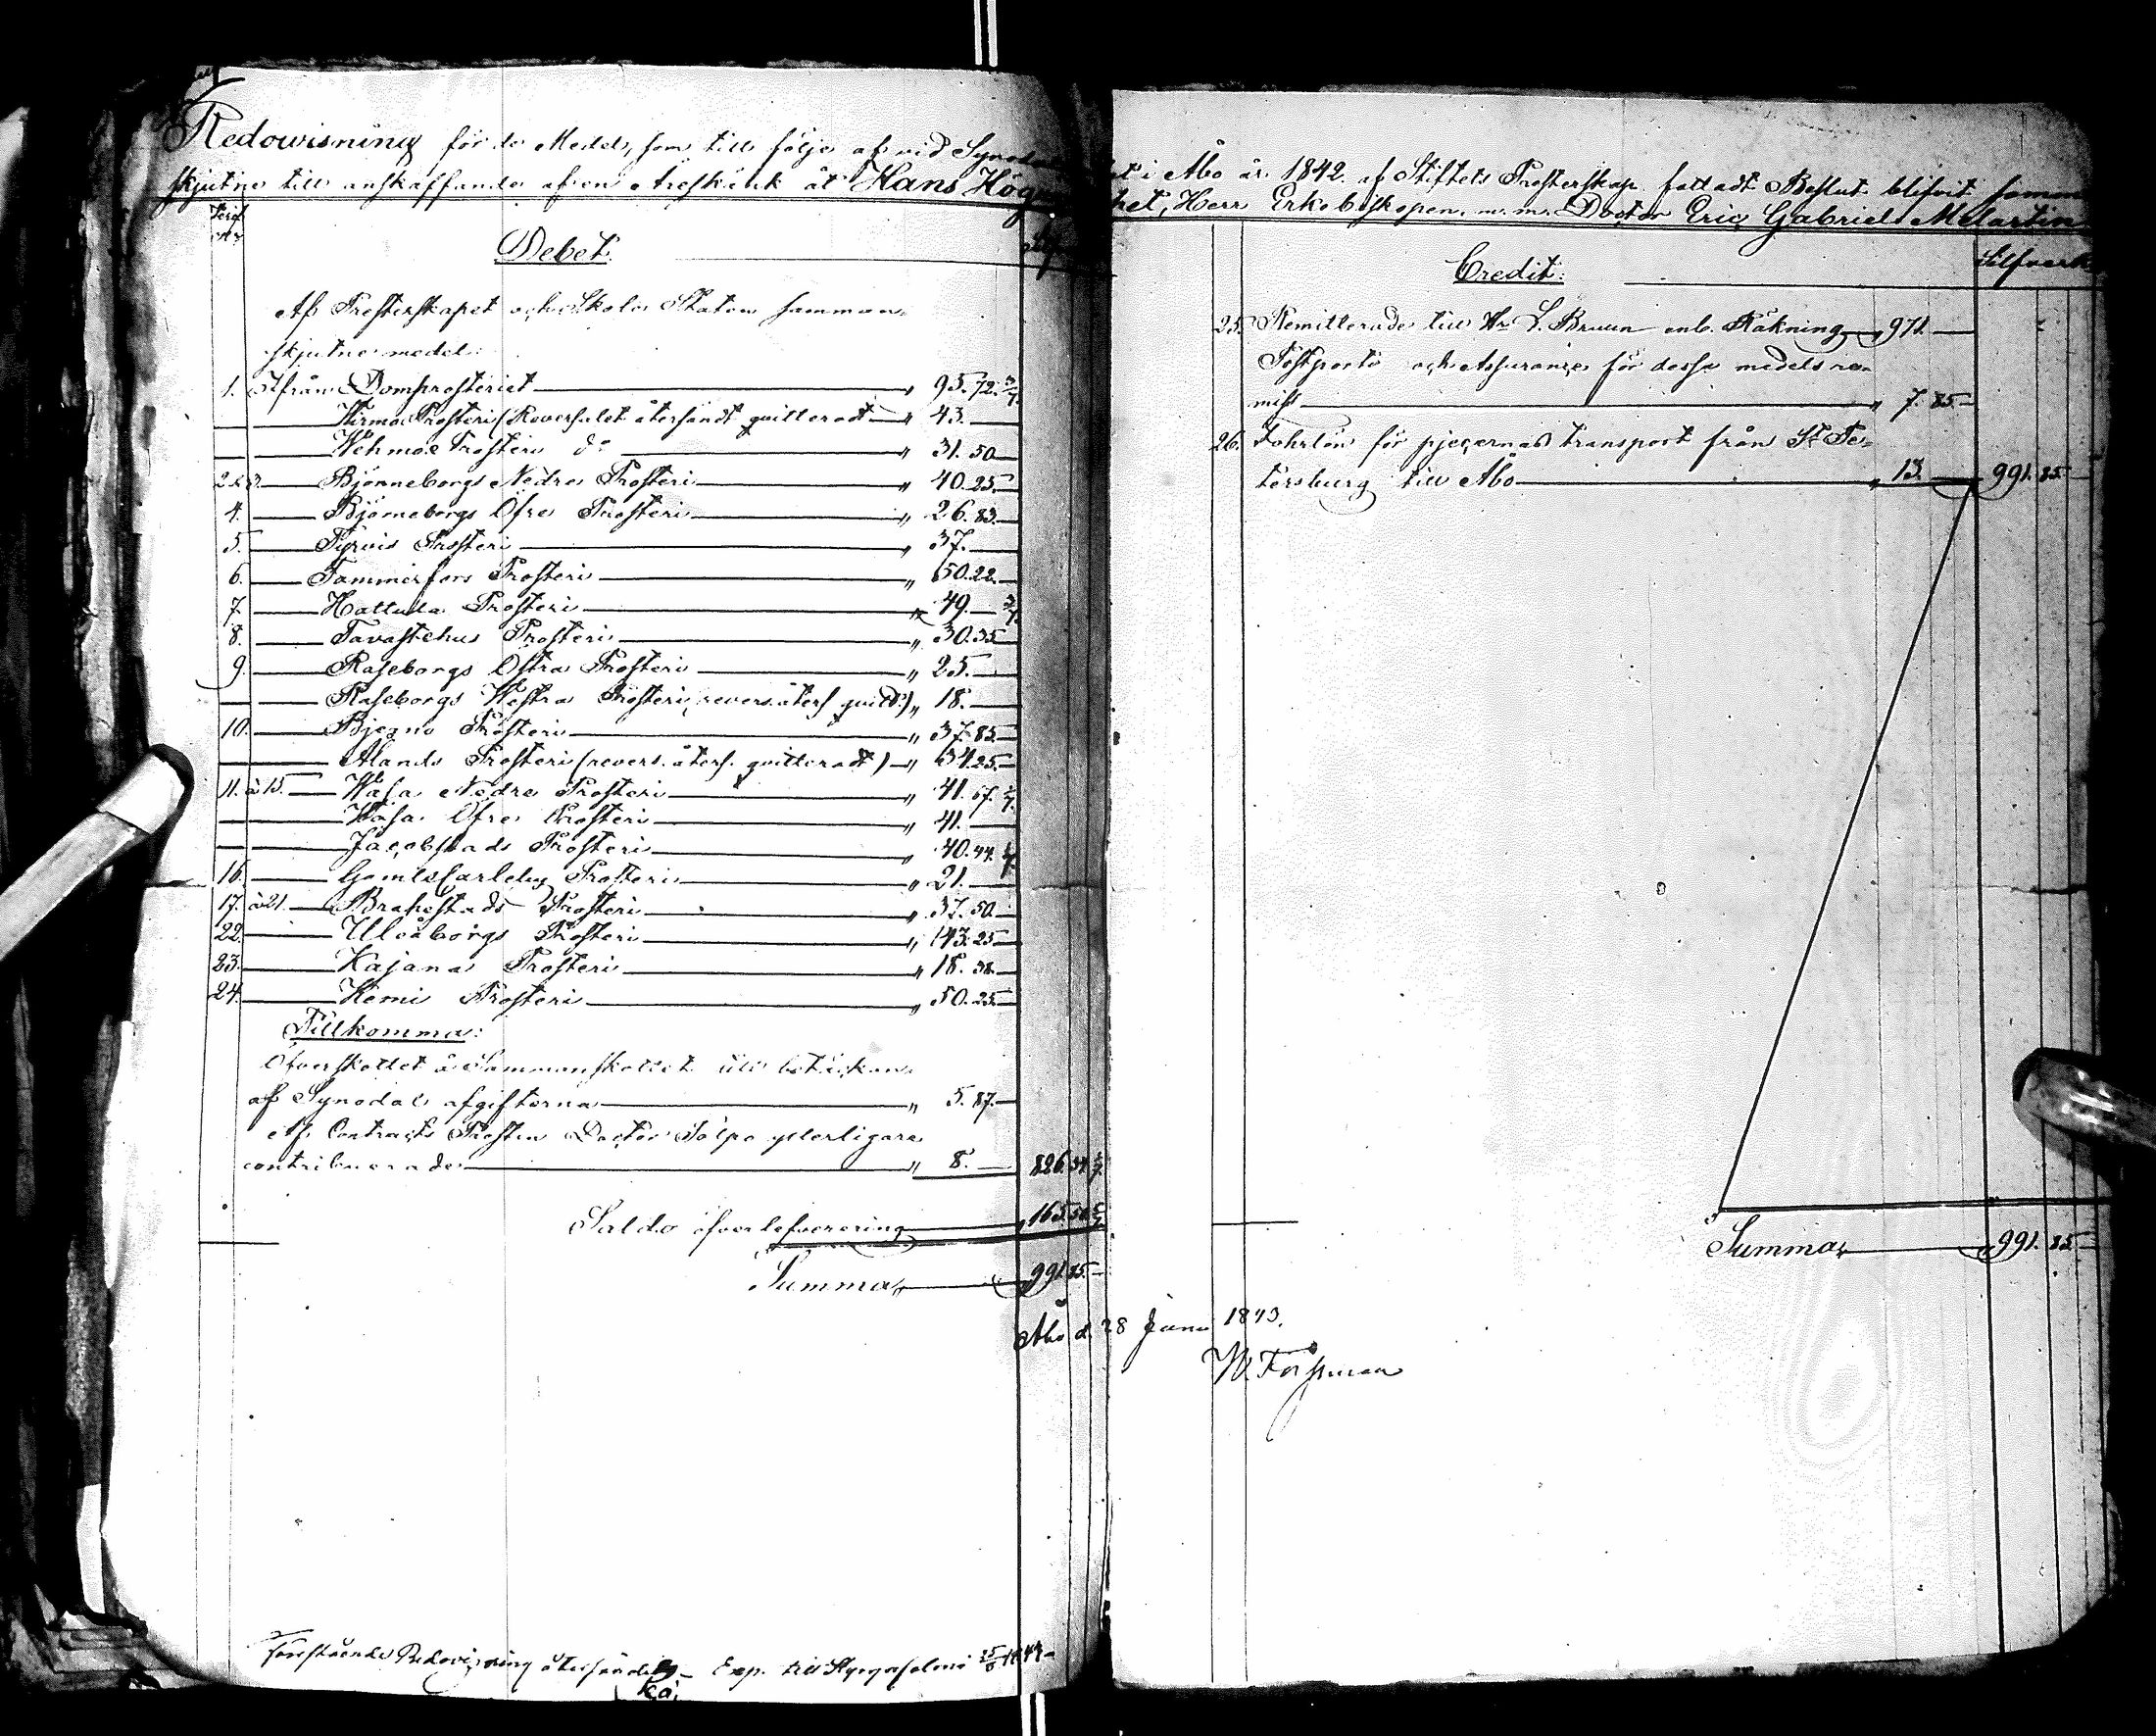 Redowisning för de Medel, som till följe af vid Synodal
skjutne till anskaffande af en Äreskänk åt Hans Hög
Debet.
Af Presterskapet och Schole Staten samman-
skjutne medel:
1. Ifrån Domprosteriet " 95. 72. 3/7.
Wirmo Prosteri (Reversalet återsändt qvitteradt " 43.
Wehmo Prosteri d:o " 31. 50
2 & 3. Björneborgs Nedre Prosteri " 40. 25.
4. Björneborgs Öfre Prosteri " 26. 83.
5. Tyrvis Prosteri " 37.
6. Tammerfors Prosteri " 50. 22.
7. Hattula Prosteri " 49. 3/7.
8. Tavastehus Prosteri " 30. 35
9. Raseborgs Östra Prosteri " 25.
Raseborgs Westra Prosteri, revers. åters. qvitt.) " 18.
10. Bjerno Prosteri " 37. 85.
Ålands Prosteri (revers. åters. qvitteradt) " 34. 25.
11. à 15. Wasa Nedre Prosteri " 41. 67. 2/7.
Wasa Öfre Prosteri " 41.
Jacobstads Prosteri " 40. 44.
16. Gamlecarleby Prosteri " 21.
17. à 21. Brahestads Prosteri " 37. 50.
22. Uleåborgs Prosteri " 43. 25
23. Kajana Prosteri " 18. 38.
24. Kemi Prosteri " 50. 25.
Tillkomma:
Öfverskottet å Sammanskottet till betäckan-
af Synodal afgifterna " 5. 87.
Af Contracts Prosten Doctor Tölpo ytterligare
contribuerade " 8. 826. 34
Saldo öfverlefverering " 165. 50
Summa 991. 85.
Förestående Redovisning återsänd Exp. till
t i Åbo år 1842. af Stiftets Presterskap fattadt Beslut blifvit samman
het, Herr Erkebiskopen m. m. Doctor Eric Gabriel Melartin
Credit: Silfver
25. Remitterade till Hr L. Bruun enl. Räkning " 971.
Postporto och Assurance för dessa medels re-
miss " 7. 85.
26. Forlön för pjecernas transport från St. Pe-
tersburg till Åbo " 13. 991. 85.
Summa 991. 85.
Åbo d. 28 Juni 1843.
W. Forssman